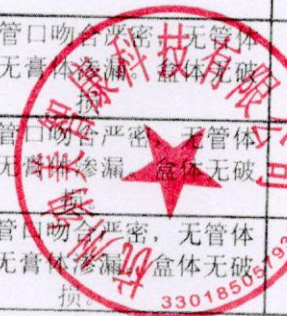 管口吻合严密，无管体
无膏体渗漏。盒体无破
损。
管口吻合严密，无管体
无膏体渗漏。盒体无破
损。
管口吻合严密，无管体
无膏体渗漏。盒体无破
损。
智康科技有限公司